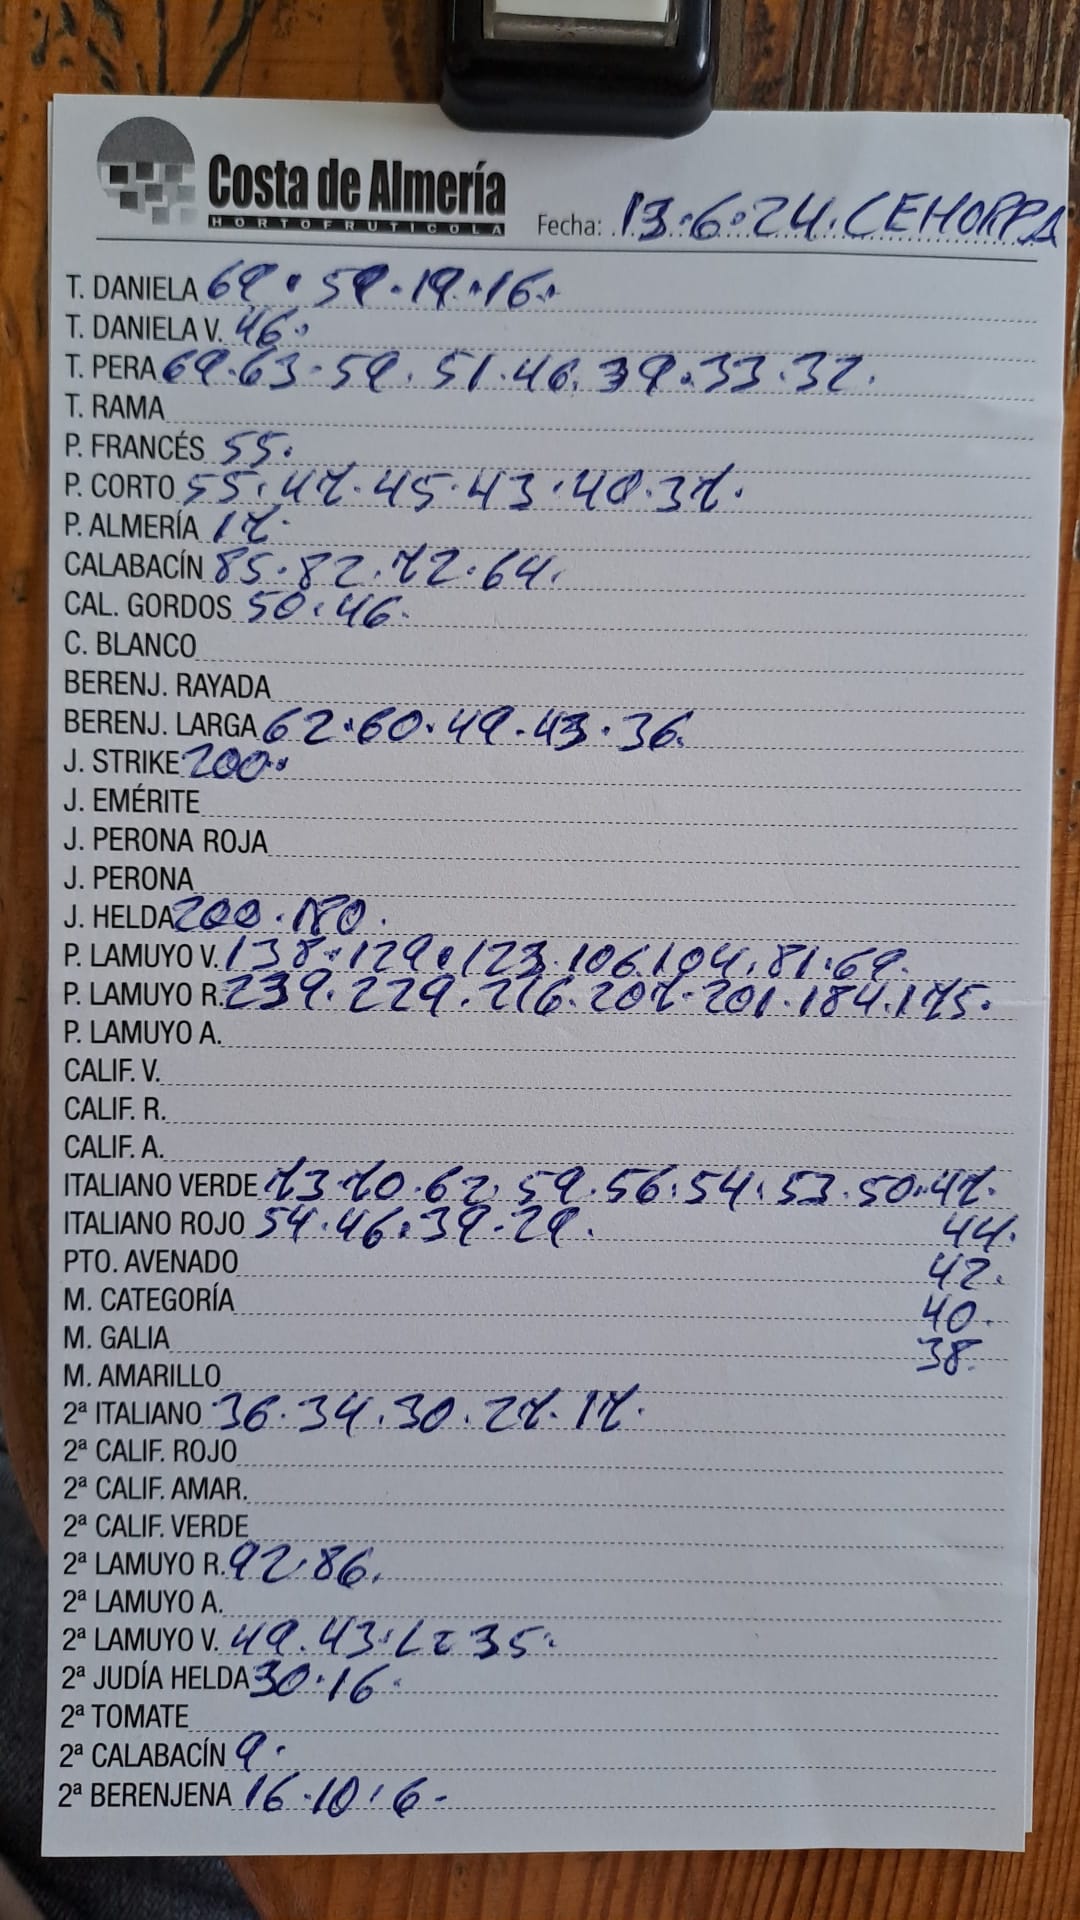 Costa de Almería
HORTOFRUTÍCOLA
Fecha: 13.6.24. CEHORPA
T. DANIELA 69.59.19.16.
T. DANIELA V. 46.
T. PERA 69.63.59.51.46.39.33.32.
T. RAMA
P. FRANCÉS 55.
P. CORTO 55.47.45.43.40.37.
P. ALMERÍA 17.
CALABACÍN 85.82.72.64.
CAL. GORDOS 50.46.
C. BLANCO
BERENJ. RAYADA
BERENJ. LARGA 62.60.49.43.36.
J. STRIKE 200.
J. EMÉRITE
J. PERONA ROJA
J. PERONA
J. HELDA 200.180.
P. LAMUYO V. 138.129.123.106.104.81.69.
P. LAMUYO R. 239.229.216.207.201.184.175.
P. LAMUYO A.
CALIF. V.
CALIF. R.
CALIF. A.
ITALIANO VERDE 73.70.62.59.56.54.53.50.47.
ITALIANO ROJO 54.46.39.29. 44.
PTO. AVENADO 42.
M. CATEGORÍA 40.
M. GALIA 38.
M. AMARILLO
2ª ITALIANO 36.34.30.27.17.
2ª CALIF. ROJO
2ª CALIF. AMAR.
2ª CALIF. VERDE
2ª LAMUYO R. 92.86.
2ª LAMUYO A.
2ª LAMUYO V. 49.43. 35.
2ª JUDÍA HELDA 30.16.
2ª TOMATE
2ª CALABACÍN 9.
2ª BERENJENA 16.10.6.